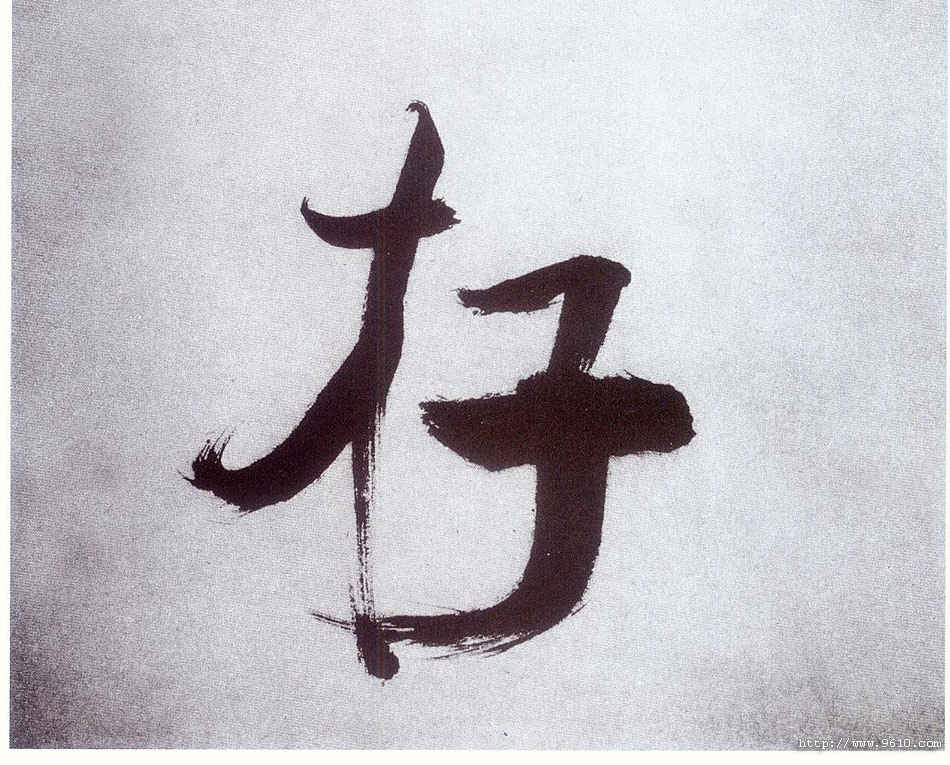 存
http://www.9610.com